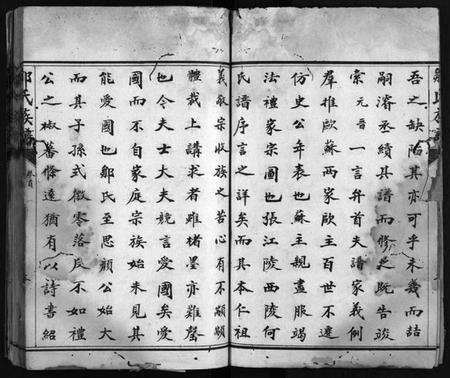 吾之缺陷其亦可乎未幾而喆
嗣濬丞續具譜而修之既告竣
索元晉一言弁首夫譜家義例
羣推歐蘇兩家歐主百世不遷
仿史公年表也蘇主親盡服竭
法禮家宗圖也張江陵西陵何
氏譜序言之詳矣而其本仁祖
義敬宗收族之苦心有不顓顓
體裁上講求者雖楮墨亦難罄
也今夫士大夫競言愛國矣愛
國而不自家庭宗族始未見其
能愛國也鄒氏至思顏公始大
而其子孫式微零落反不如禮
公之椒蕃條遠猶有以詩書紹
鄒氏族譜